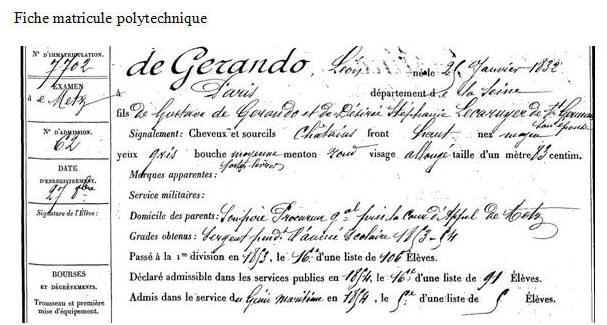 Fiche matricule polytechnique
N° D'IMMATRICULATION.
7702
EXAMEN
d e Metz
N° D'ADMISSION.
62
DATE
D'ENREGISTREMENT.
27 9bre
Signature de l'Élève :
BOURSES
ET DÉGRÈVEMENTS.
Trousseau et première
mise d'équipement.
de Gerando, Léon né le 25 Janvier 1832
à Paris département de la Seine
fils de Gustave de Gérando et de Désirée Stéphanie Lecaruyer de
Signalement: Cheveux et sourcils Chatains front haut nez moyen
yeux gris bouche moyenne menton rond visage allongé taille d'un mètre 83 centim.
Marques apparentes:
Service militaires:
Domicile des parents: Son père Procureur gal près la Cour d'Appel de Metz
Grades obtenus: Sergent pendt l'année Scolaire 1853-54
Passé à la 1re division en 1853, le 16e d'une liste de 106 Élèves.
Déclaré admissible dans les services publics en 1854, le 16e d'une liste de 91 Élèves.
Admis dans le service du Génie maritime en 1854, le 5e d'une liste de 5 Élèves.